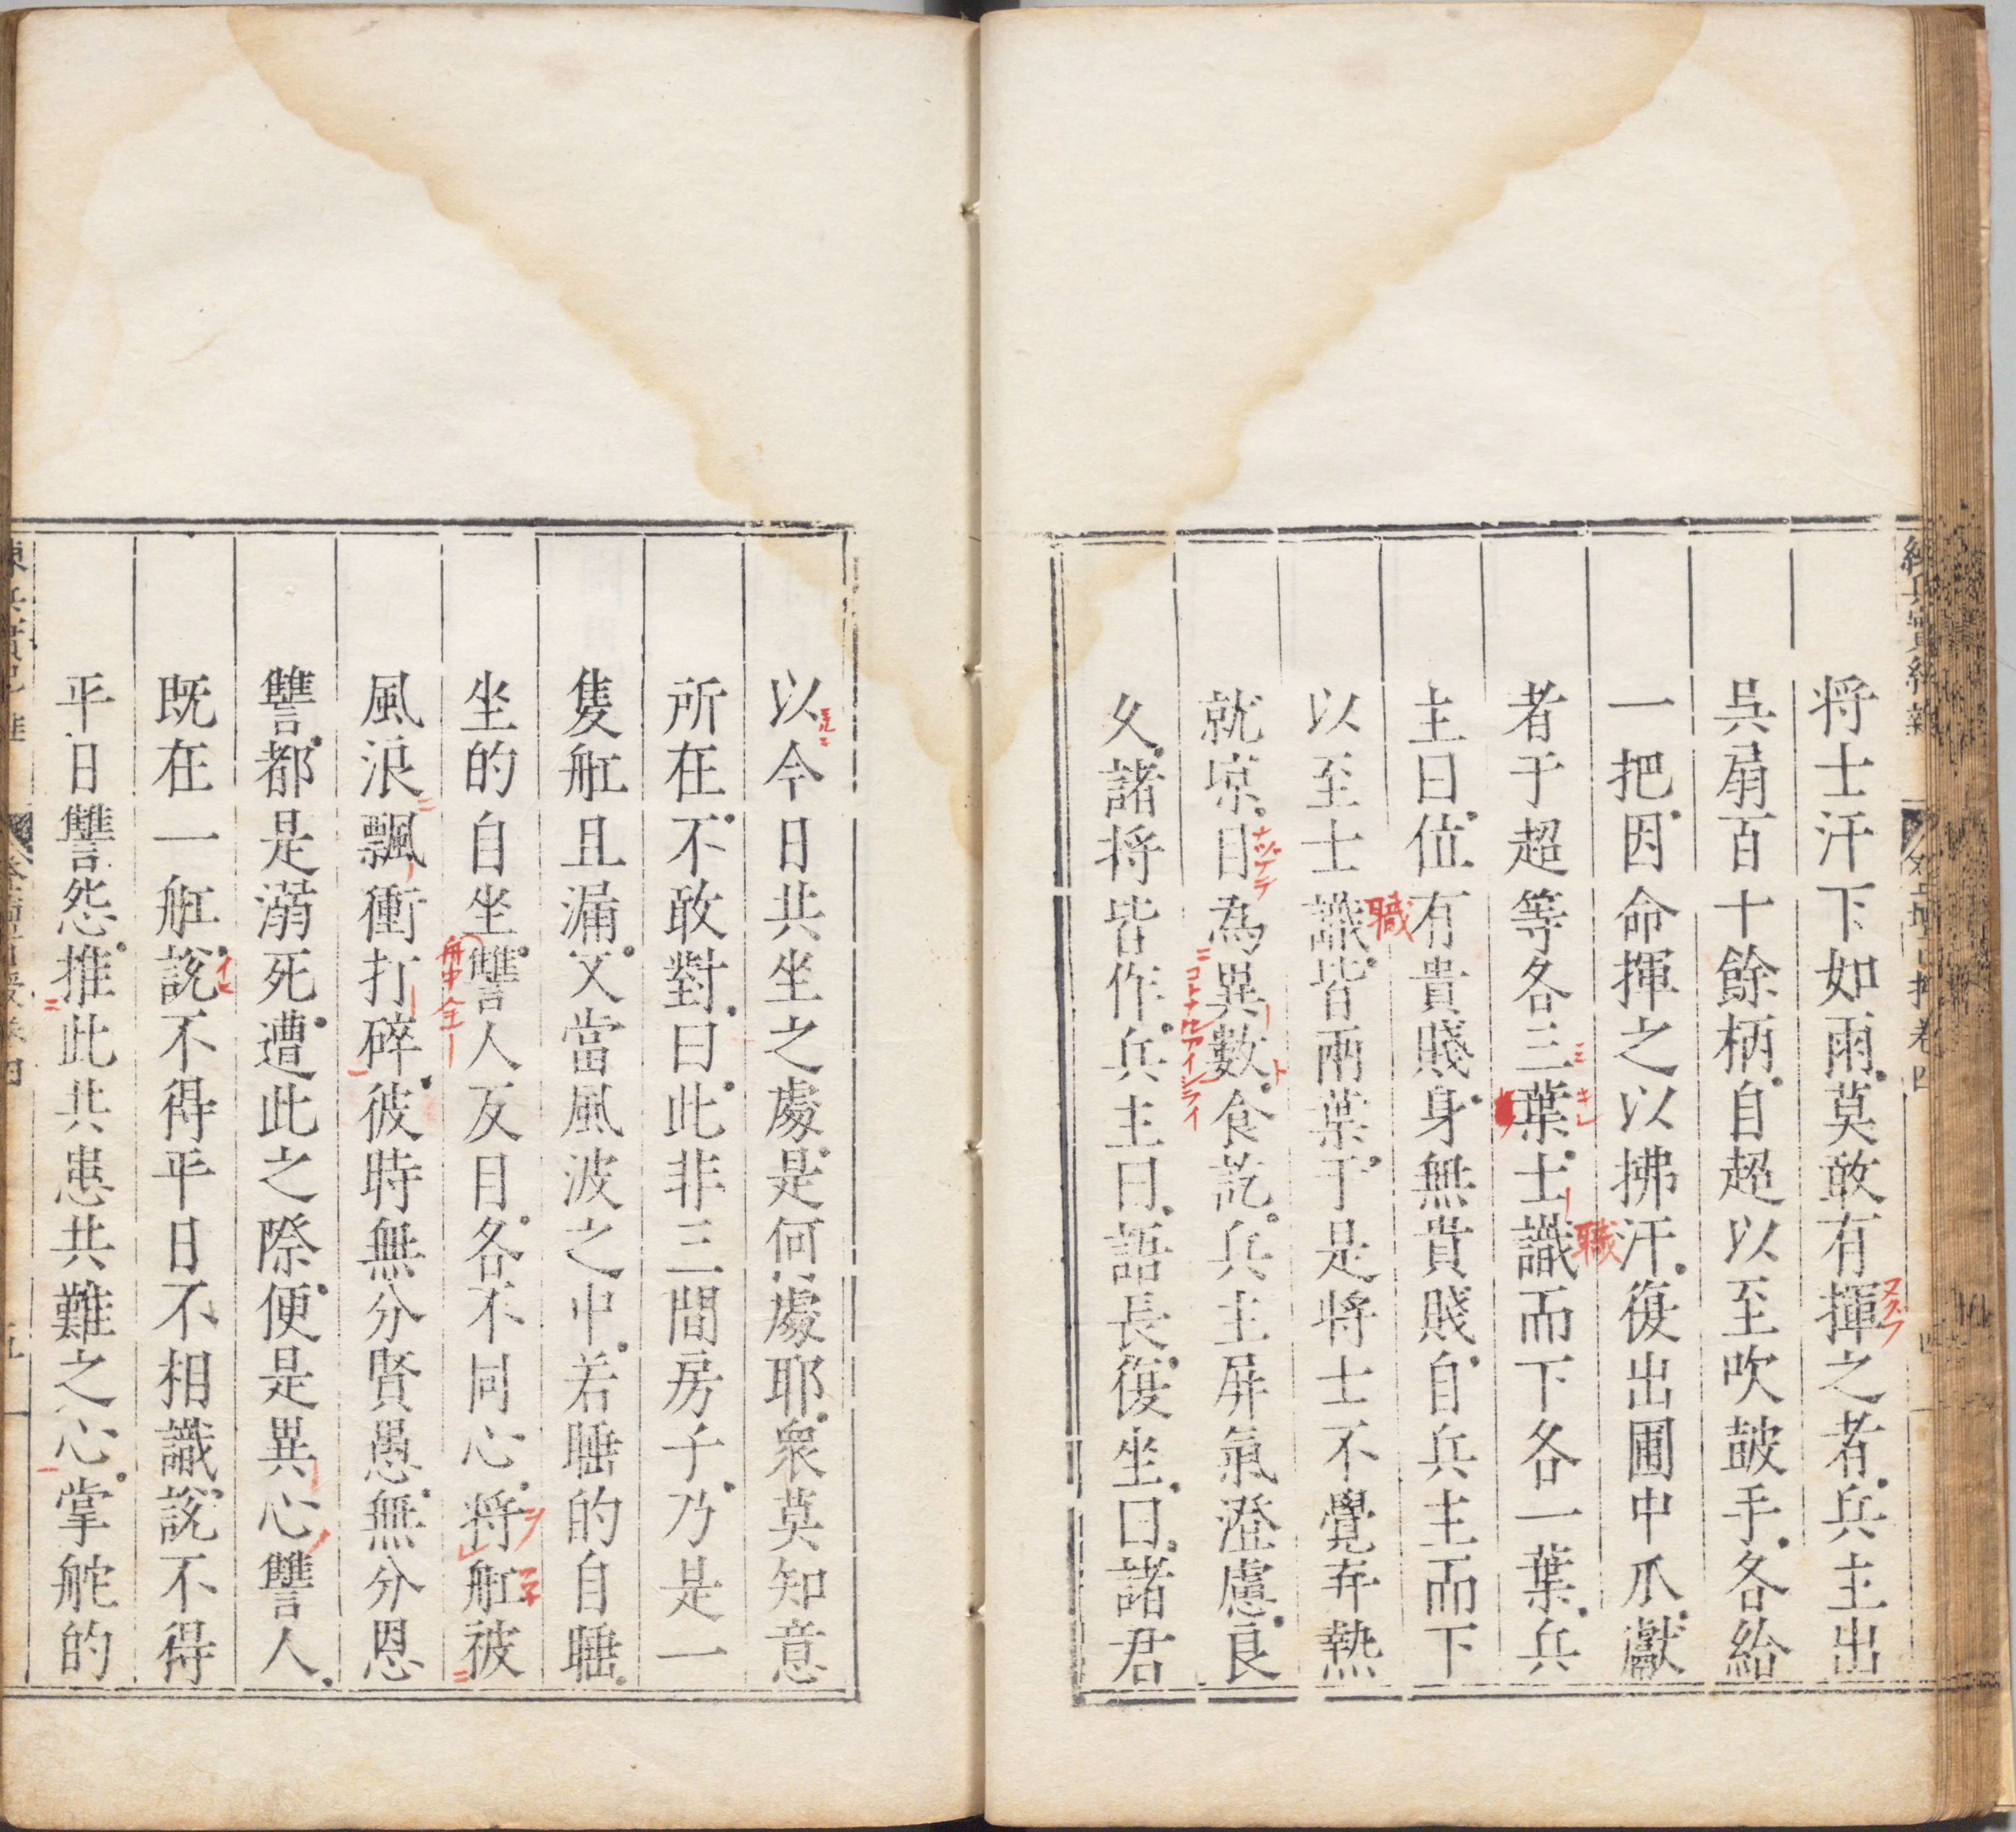 将士汗下如雨莫敢有揮之者兵主出
呉扇百十餘柄自超以至吹鼓手各給
一把因命揮之以拂汗復出圃中爪獻
者于超等各三葉士識而下各一葉兵
主曰位有貴賤身無貴賤自兵主而下
以至士識皆兩葉于是将士不覺弃熱
就凉目為異數食訖兵主屏氣澄慮良
乆諸将皆作兵主曰語長復坐曰諸君
以今日共坐之處是何處耶衆莫知意
所在不敢對曰此非三間房子乃是一
隻舡且漏又當風波之中若睡的自睡
坐的自坐讐人反目各不同心将舡被
風浪飄衝打碎彼時無分賢愚無分恩
讐都是溺死遭此之際便是異心讐人
既在一舡說不得平日不相識說不得
平日讐怨推此共患共難之心掌舵的
職
職
ヌグフ
舟中全